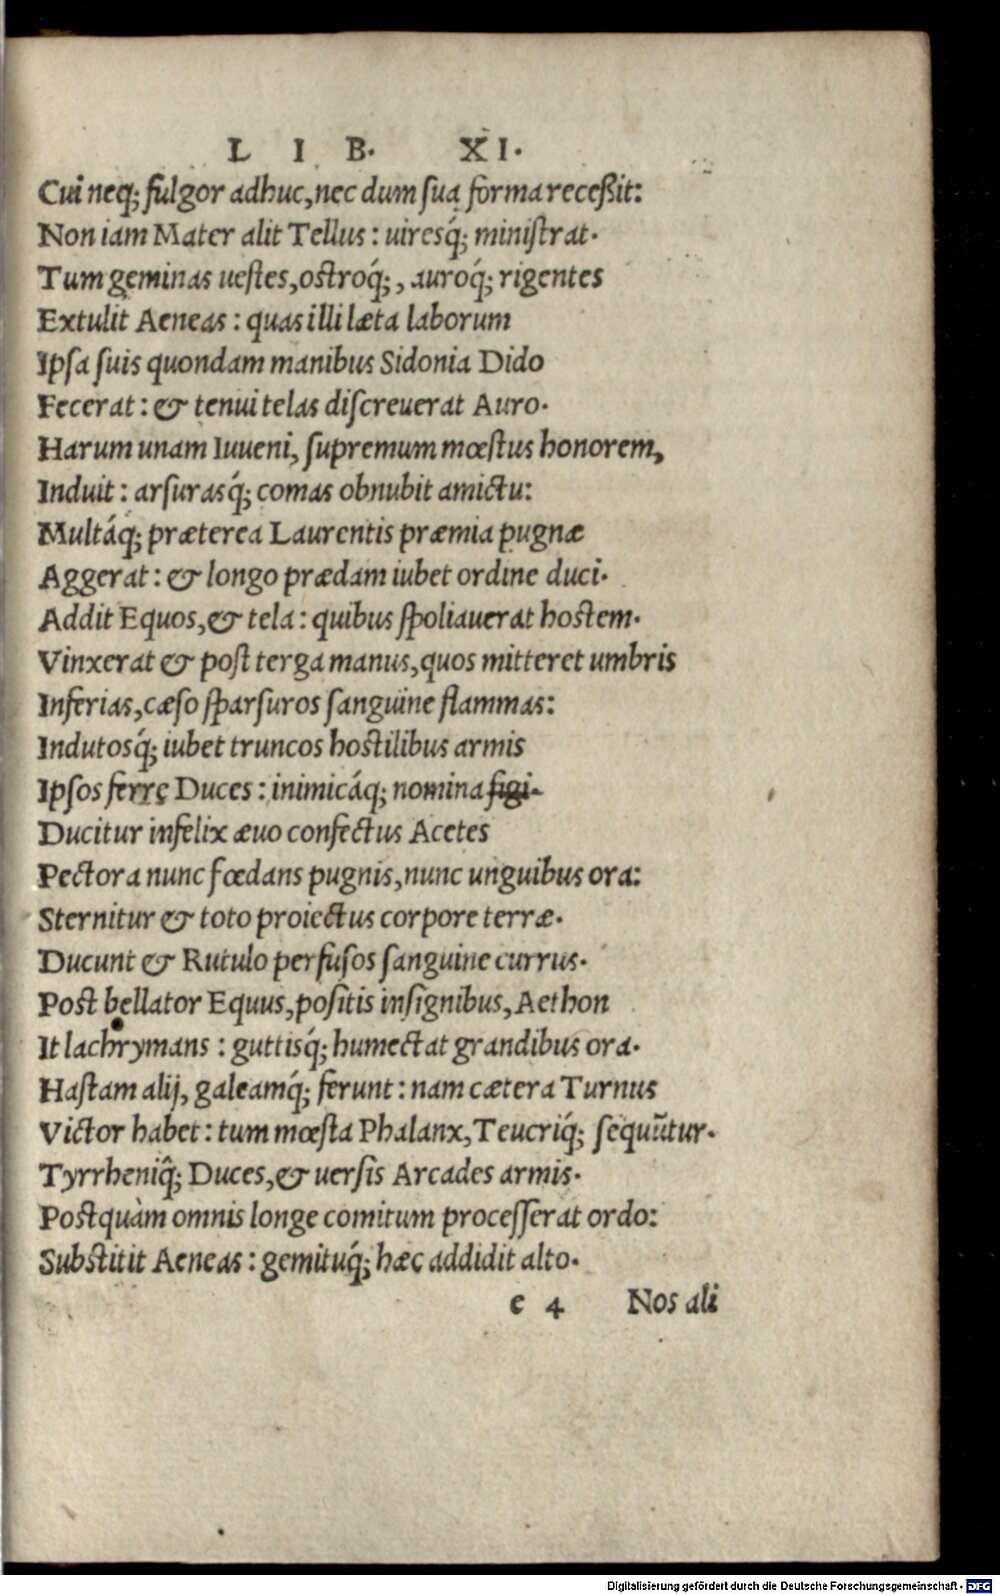 LIB. XI.
Cui neq; fulgor adhuc, nec dum sua forma receßit:
Non iam Mater alit Tellus: uiresq́; ministrat.
Tum geminas uestes, ostroq́;, auroq́; rigentes
Extulit Aeneas: quas illi læta laborum
Ipsa suis quondam manibus Sidonia Dido
Fecerat: & tenui telas discreuerat Auro.
Harum unam Iuueni, supremum mœstus honorem,
Induit: arsurasq́; comas obnubit amictu:
Multáq; præterea Laurentis præmia pugnæ
Aggerat: & longo prædam iubet ordine duci.
Addit Equos, & tela: quibus spoliauerat hostem.
Vinxerat & post terga manus, quos mitteret umbris
Inferias, cæso sparsuros sanguine flammas:
Indutosq́; iubet truncos hostilibus armis
Ipsos ferre Duces: inimicáq; nomina figi.
Ducitur infelix æuo confectus Acetes
Pectora nunc fœdans pugnis, nunc unguibus ora:
Sternitur & toto proiectus corpore terræ.
Ducunt & Rutulo perfusos sanguine currus.
Post bellator Equus, positis insignibus, Aethon
It lachrymans: guttisq́; humectat grandibus ora.
Hastam alij, galeamq́; ferunt: nam cætera Turnus
Victor habet: tum mœsta Phalanx, Teucriq́; sequũtur.
Tyrrheniq̂; Duces, & uersis Arcades armis.
Postquàm omnis longe comitum processerat ordo:
Substitit Aeneas: gemituq́; hæc addidit alto.
e 4 Nos ali
Digitalisierung gefördert durch die Deutsche Forschungsgemeinschaft - DFG